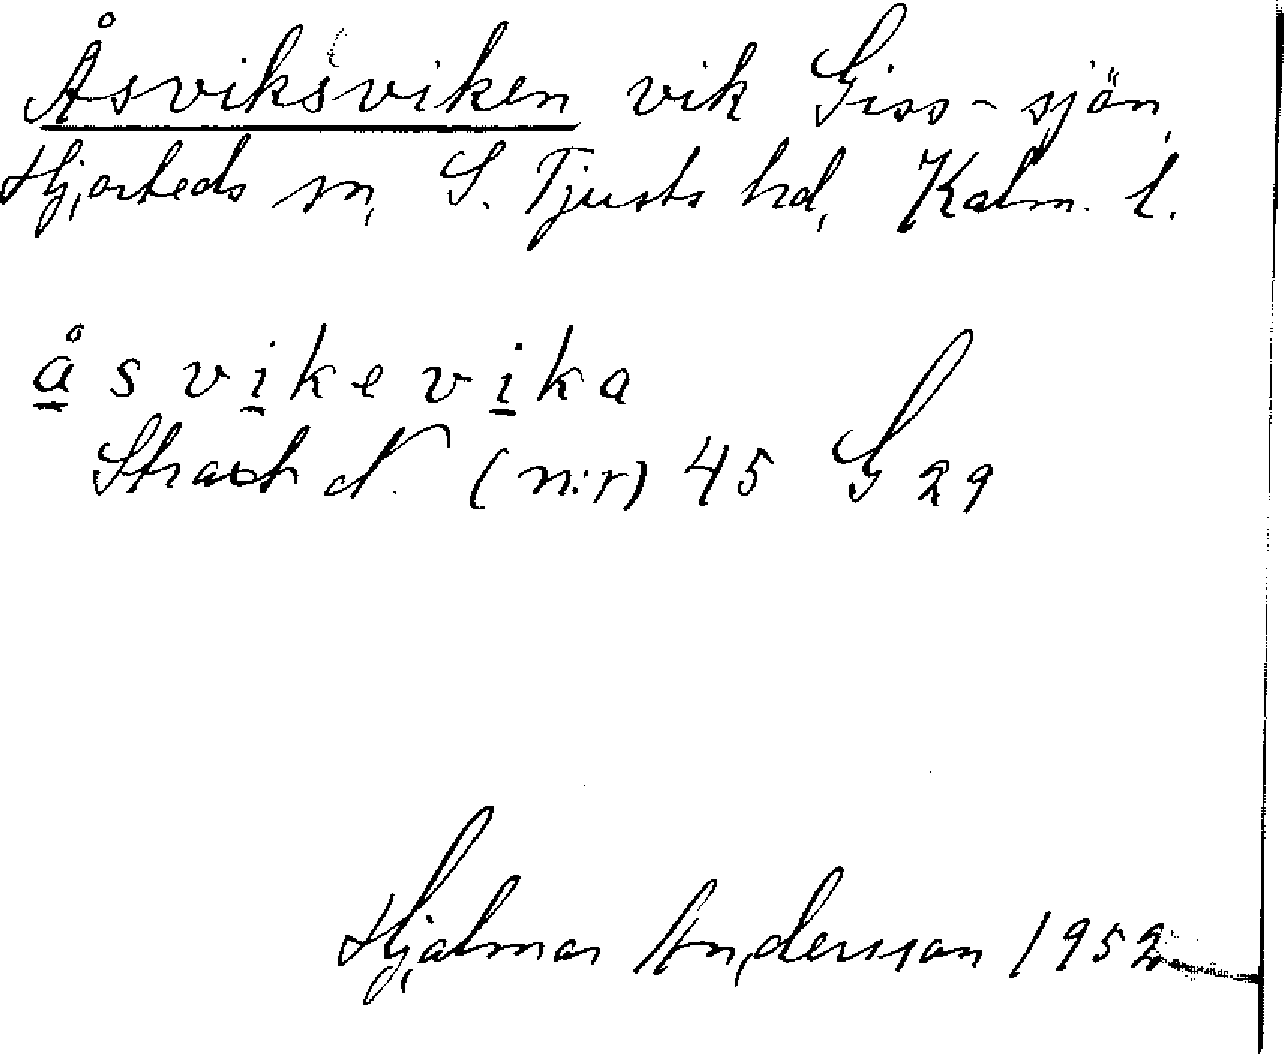 Åsviksviken vik Giss-sjön,
Hjorteds sn, S. Tjusts hd, Kalm. l.
åsvikevika
(n:r) 45 G 29
Hjalmar Andersson 1952